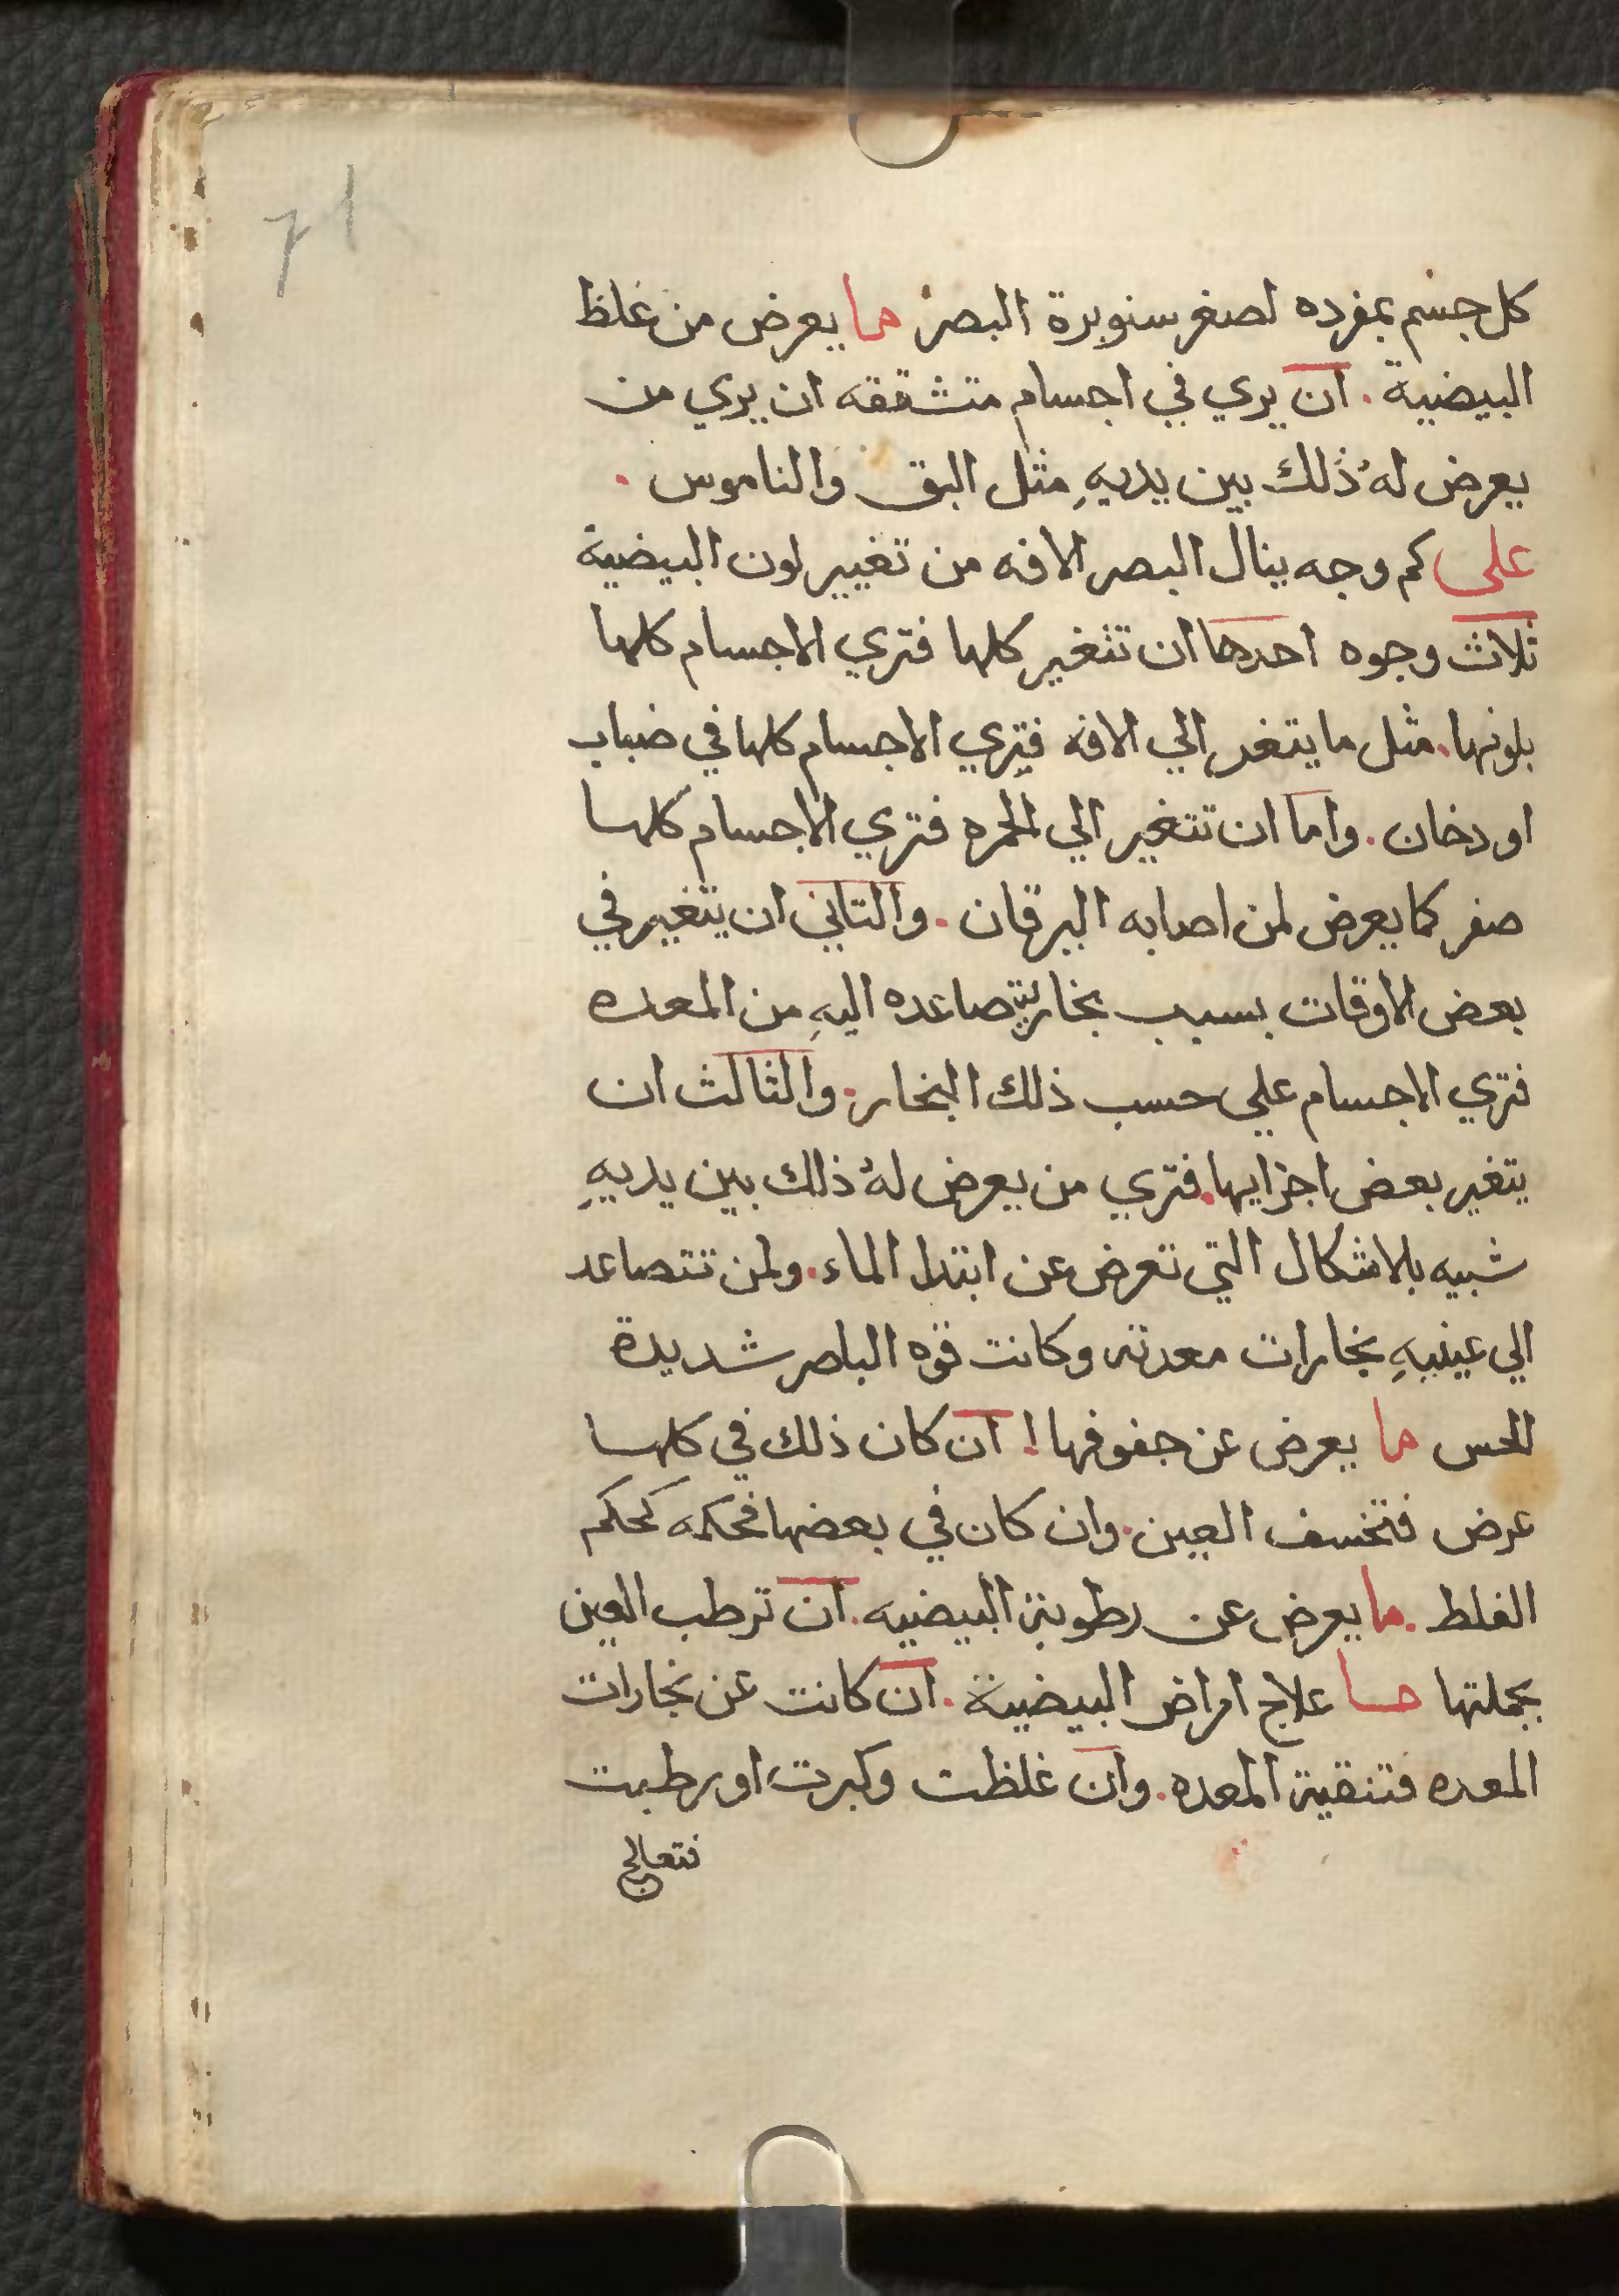 ٢١
كل جسم بمفرده لصغر سنوبرة البصر ما يعرض من غلظ
البيضية . ان يري في اجسام متشققه ان يري من
يعرض لهُ ذلك بين يديهِ مثل البق والناموس .
على كم وجه ينال البصر الافه من تغيير لون البيضية
ثلاث وجوه احدها ان تتغير كلها فتري الاجسام كلها
بلونها . مثل ما يتغير الي الافه فيري الاجسام كلها في ضباب
او دخان . واما ان تتغير الي الحمره فتري الاجسام كلها
صفر كما يعرض لمن اصابه اليرقان . والثاني ان يتغير في
بعض الاوقات بسبب بخار يتصاعده اليهِ من المعده
فتري الاجسام علي حسب ذلك البخار . والثالث ان
يتغير بعض اجزايها . فتري من يعرض لهُ ذلك بين يديهِ
شبيه بلاشكال التي تعرض عن ابتدا الماء . ولمن تتصاعد
الي عينيهِ بخارات معدته وكانت قوه الباصر شديدة
الحس ما يعرض عن جفوفها ! ان كان ذلك في كلها
عرض فتخسف العين . وان كان في بعضها فحكمه كحكم
الغلظ . ما يعرض عن رطوبة البيضيه . ان ترطب العين
بجملتها ما علاج امراض البيضية . ان كانت عن بخارات
المعده فتنقية المعده . وان غلظت وكبرت او رطبت
فتعالج